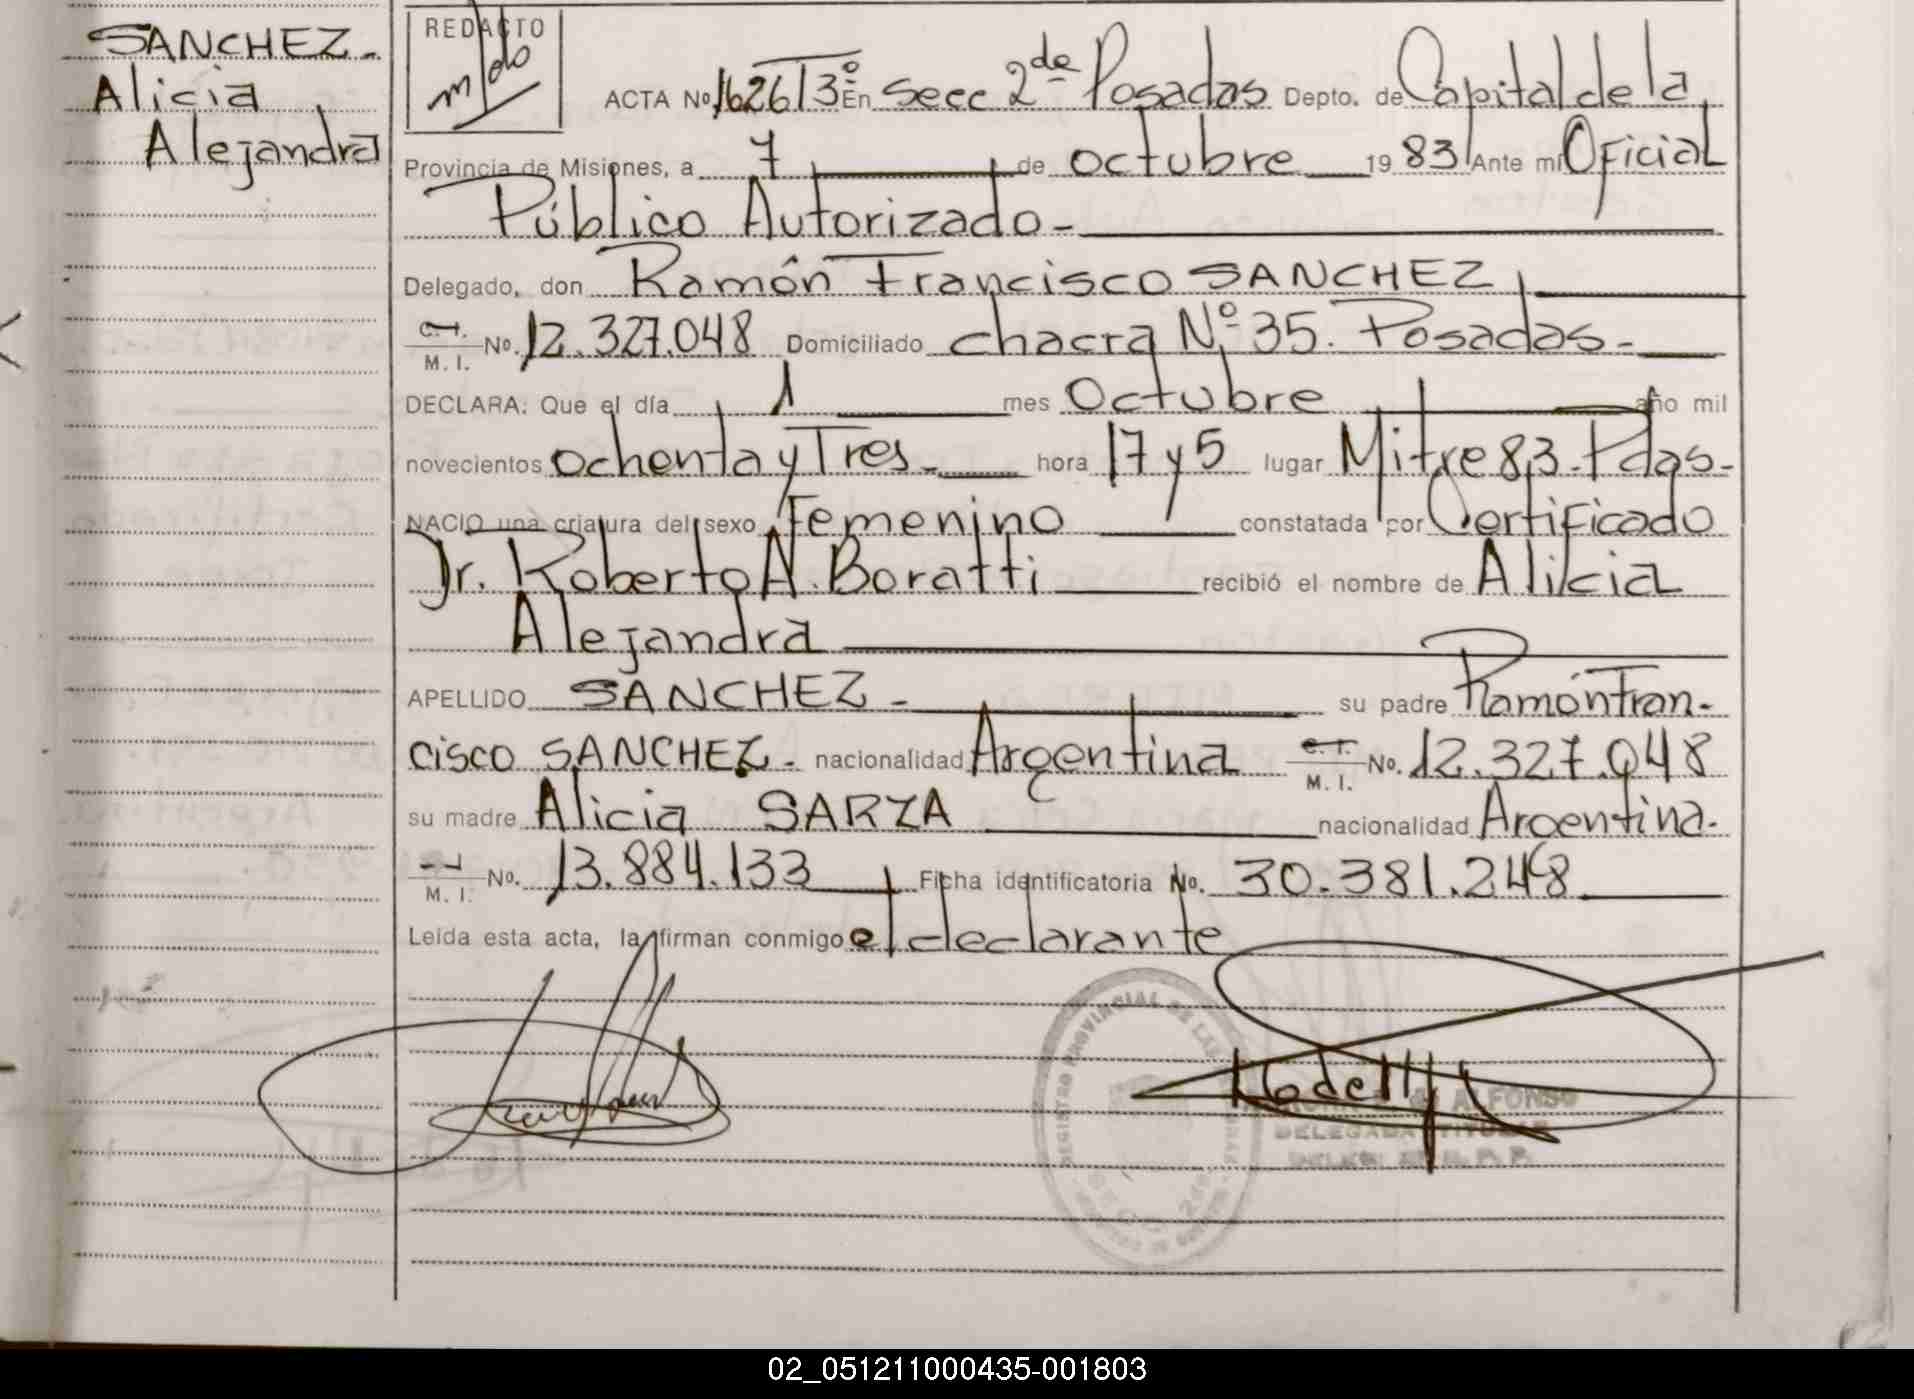 SANCHEZ-
Alicia
Alejandra
REDACTO
ACTA No. 1626 T 3º En Secc 2da Posadas Depto. de Capital de la
Provincia de Misiones, a 7 de octubre 1983 Ante mi Oficial
Público Autorizado-
Delegado, don Ramón Francisco SANCHEZ
C. I.
M. I. No. 12.327.048 Domiciliado chacra Nº 35. Posadas-
DECLARA: Que el día 1 mes Octubre año mil
novecientos ochenta y Tres- hora 17 y 5 lugar Mitre 83- Pdas-
NACIO una criatura del sexo Femenino constatada por Certificado
Dr. Roberto A. Boratti recibió el nombre de Alicia
Alejandra
APELLIDO SANCHEZ- su padre Ramón Fran-
cisco SANCHEZ- nacionalidad Argentina C. I.
M. I. No. 12.327.048
su madre Alicia SARZA nacionalidad Argentina.
M. I. No. 13.884.133 Ficha identificatoria No. 30.381.248
Leída esta acta, la firman conmigo el declarante
REGISTRO PROVINCIAL DE LAS
ALFONSO
DELEGADA TITULAR
02_051211000435-001803